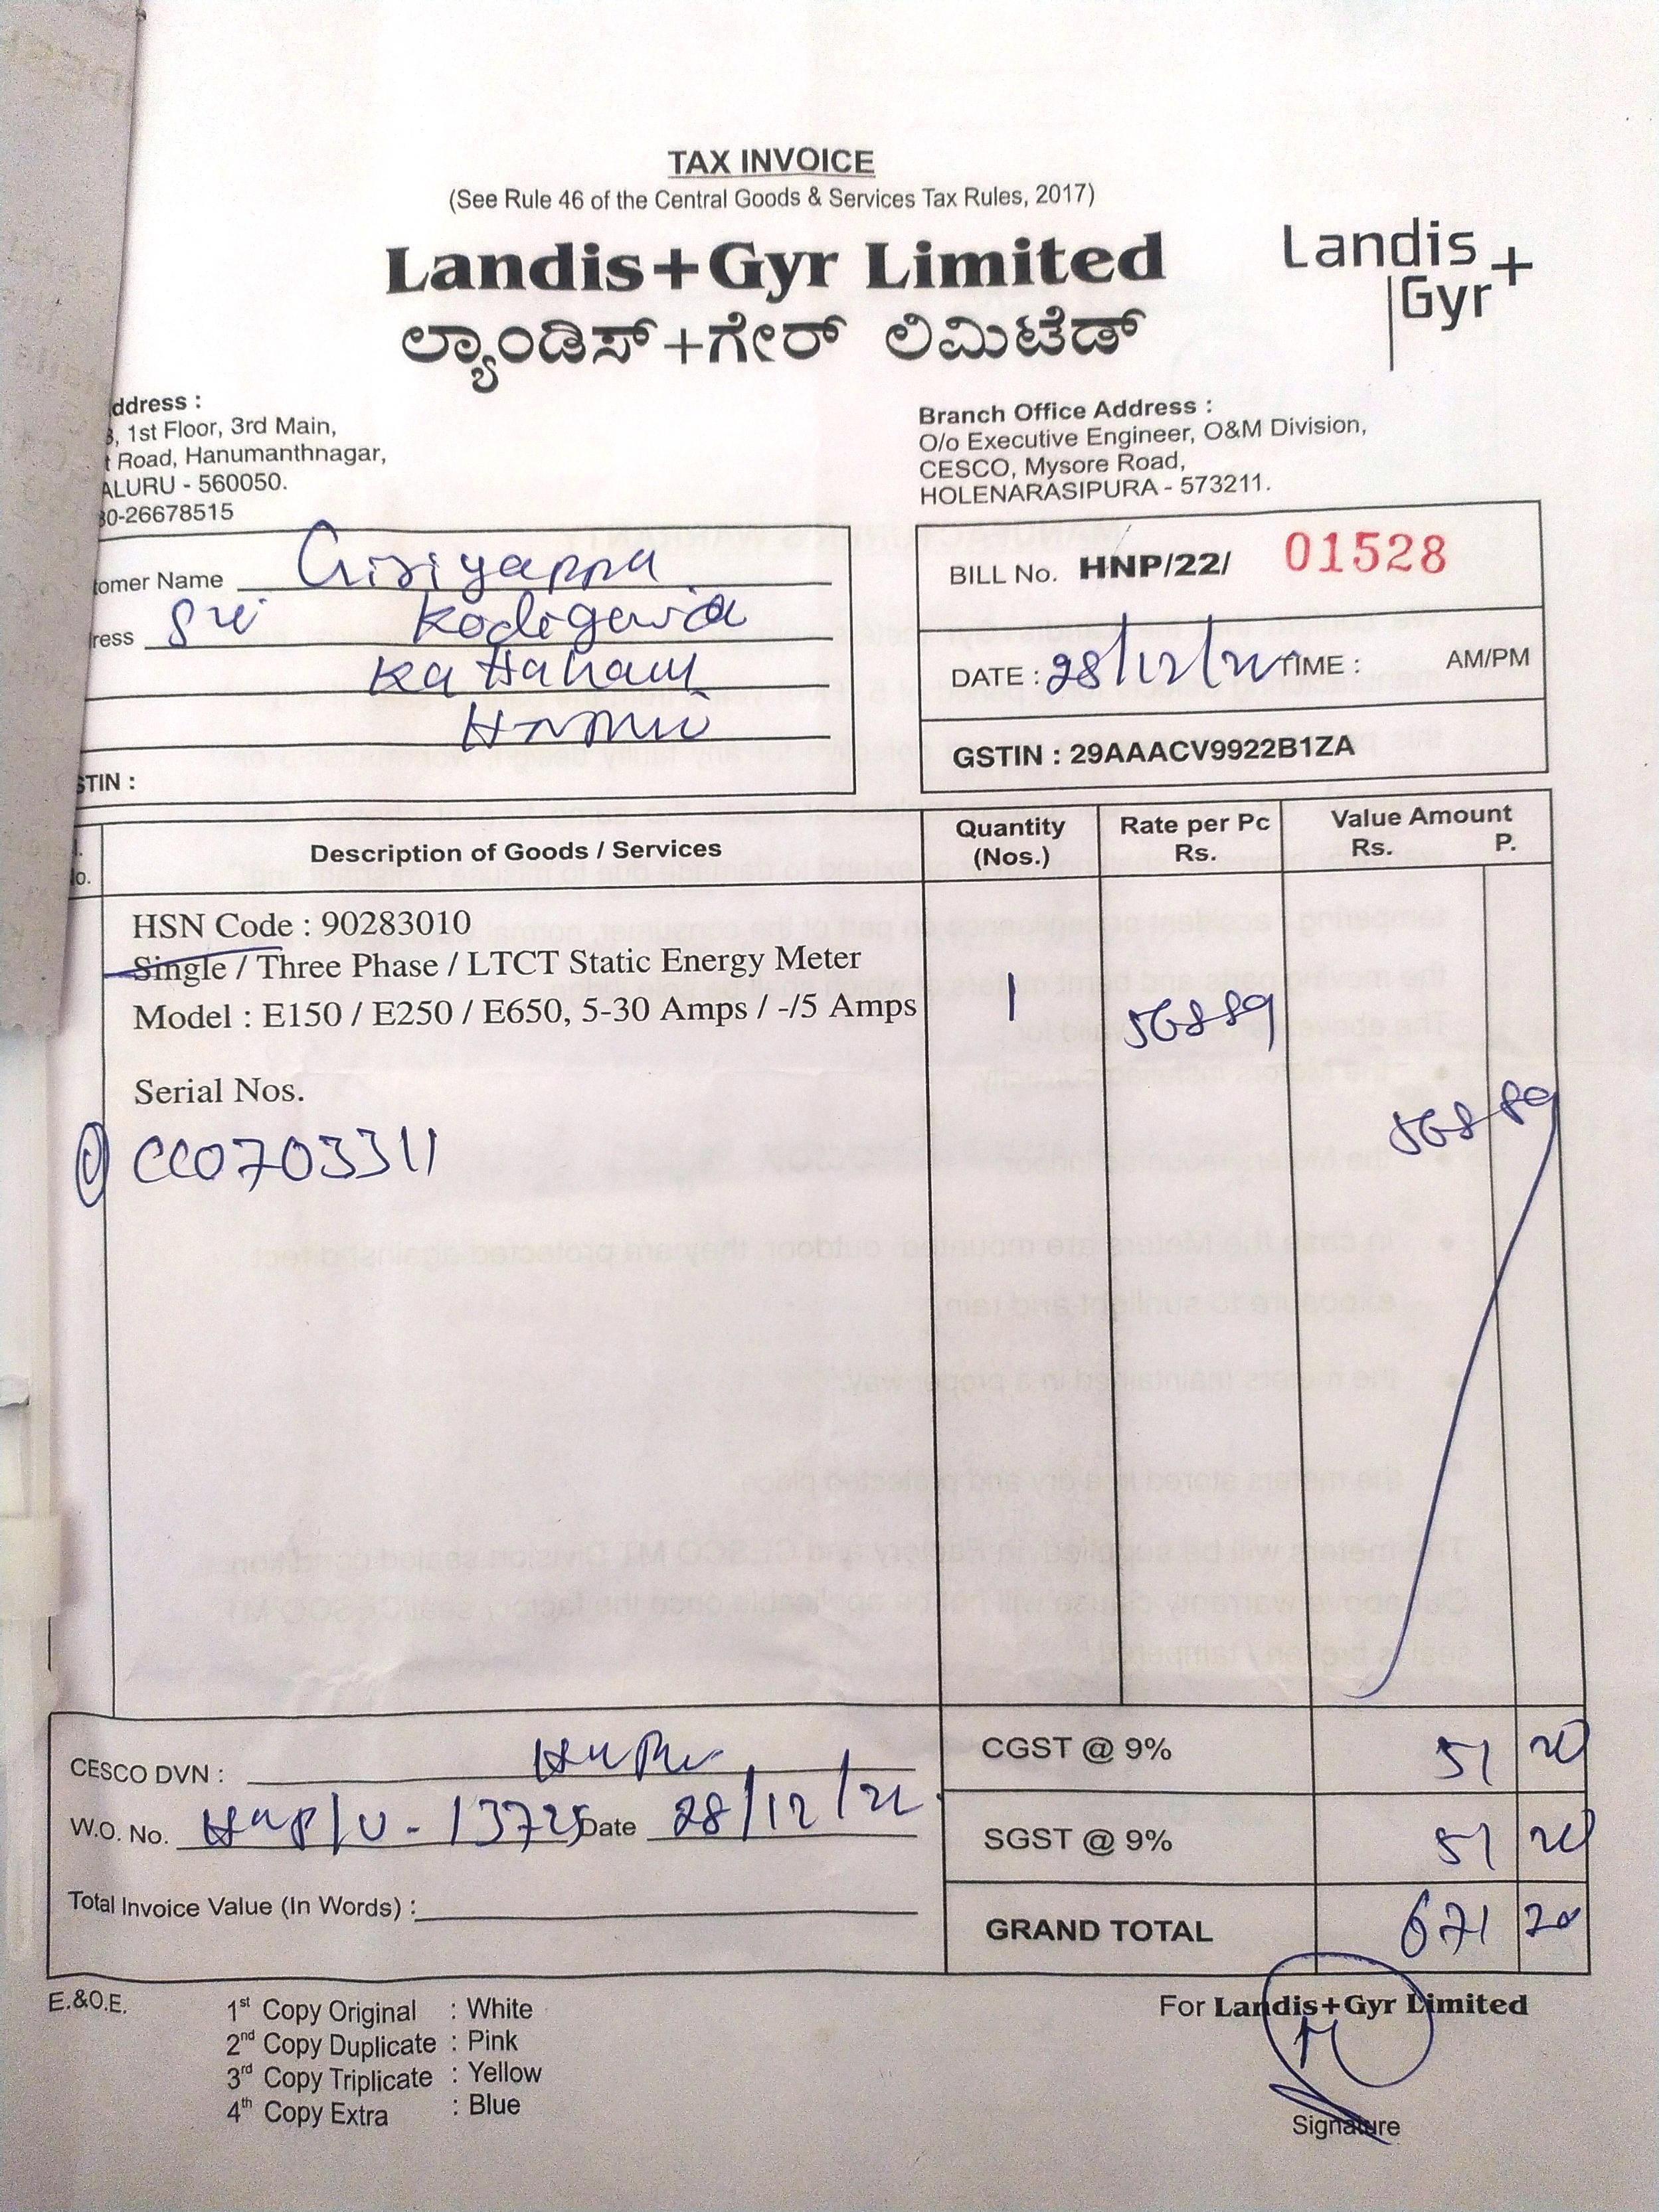 TAX INVOICE
(See Rule 46 of the Central Goods & Services Tax Rules, 2017)
Landis+Gyr Limited
ಲ್ಯಾಂಡಿಸ್+ಗೇರ್ ಲಿಮಿಟೆಡ್
Landis
Gyr+
ddress :
, 1st Floor, 3rd Main,
Road, Hanumanthnagar,
ALURU - 560050.
80-26678515
Branch Office Address :
O/o Executive Engineer, O&M Division,
CESCO, Mysore Road,
HOLENARASIPURA - 573211.
tomer Name Giriyappa
ress Kodigowda
Kattahalli
STIN :
BILL No. HNP/22/ 01528
DATE : 28/12/22 TIME : AM/PM
GSTIN : 29AAACV9922B1ZA
o. Description of Goods / Services Quantity (Nos.) Rate per Pc Rs. Value Amount Rs. P.
HSN Code : 90283010
Single / Three Phase / LTCT Static Energy Meter
Model : E150 / E250 / E650, 5-30 Amps / -/5 Amps 1 568 89
Serial Nos.
568 89
① CC0703311
CESCO DVN :
W.O. No. 13725 Date 28/12/22
Total Invoice Value (In Words) :
CGST @ 9% 51 20
SGST @ 9% 51 20
GRAND TOTAL 671 20
E.&O.E.
1st Copy Original : White
2nd Copy Duplicate : Pink
3rd Copy Triplicate : Yellow
4th Copy Extra : Blue
For Landis+Gyr Limited
Signature